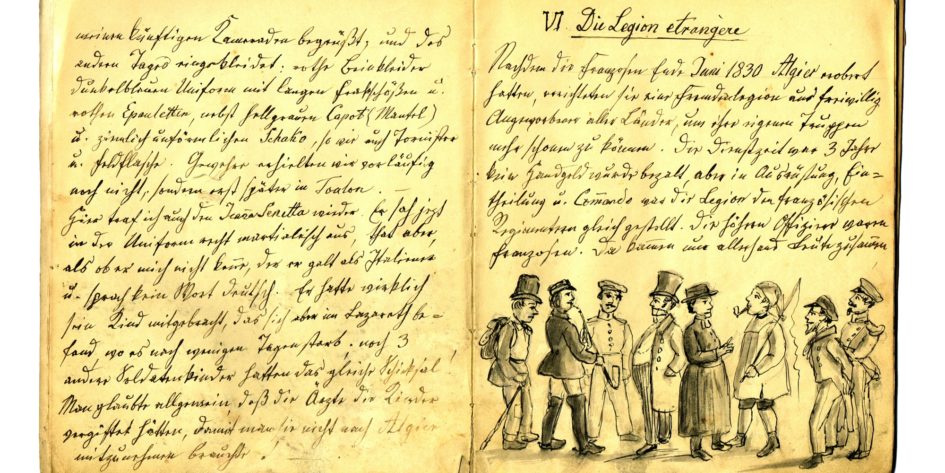 meinen künftigen Kameraden begrüßt, und des
andern Tages eingekleidet: rothe Beinkleider
dunkelblauen Uniform mit langen Frakschößen u.
rothen Epauletten, nebst hellgrauen Capot (Mantel)
u. ziemlich unförmlichen Schako, so wie auch Tornister
u. Feldflasche. Gewehre erhielten wir vorläufig
noch nicht, sondern erst später in Toulon. —
Hier traf ich auch den wieder. Er sah jezt
in der Uniform recht martialisch aus, that aber
als ob er mich nicht kenne, der er galt als Italiener
u. sprach kein Wort deutsch. Er hatte wirklich
sein Kind mitgebracht, das sich aber im Lazareth be-
fand, wo es nach wenigen Tagen starb. noch 3
andere Soldatenkinder hatten das gleiche Schiksal!
Man glaubte allgemein, daß die Ärzte die Kinder
vergiftet hätten, damit man sie nicht nach Algier
mitzunehmen brauchte!
VI. Die Legion etrangère
Nachdem die Franzosen Ende Juni 1830 Algier erobert
hatten, errichteten sie eine Fremdenlegion aus freiwillig
Angeworbenen aller Länder, um ihre eigenen Truppen
mehr schonen zu können. Die Dienstzeit war 3 Jahre
kein Handgeld wurde bezalt aber in Ausrüstung, Ein-
theilung u. Comando war die Legion den französischen
Regimentern gleich gestellt. Die höhern Offiziere waren
Franzosen. Da kamen nun allerhand Leute zusammen